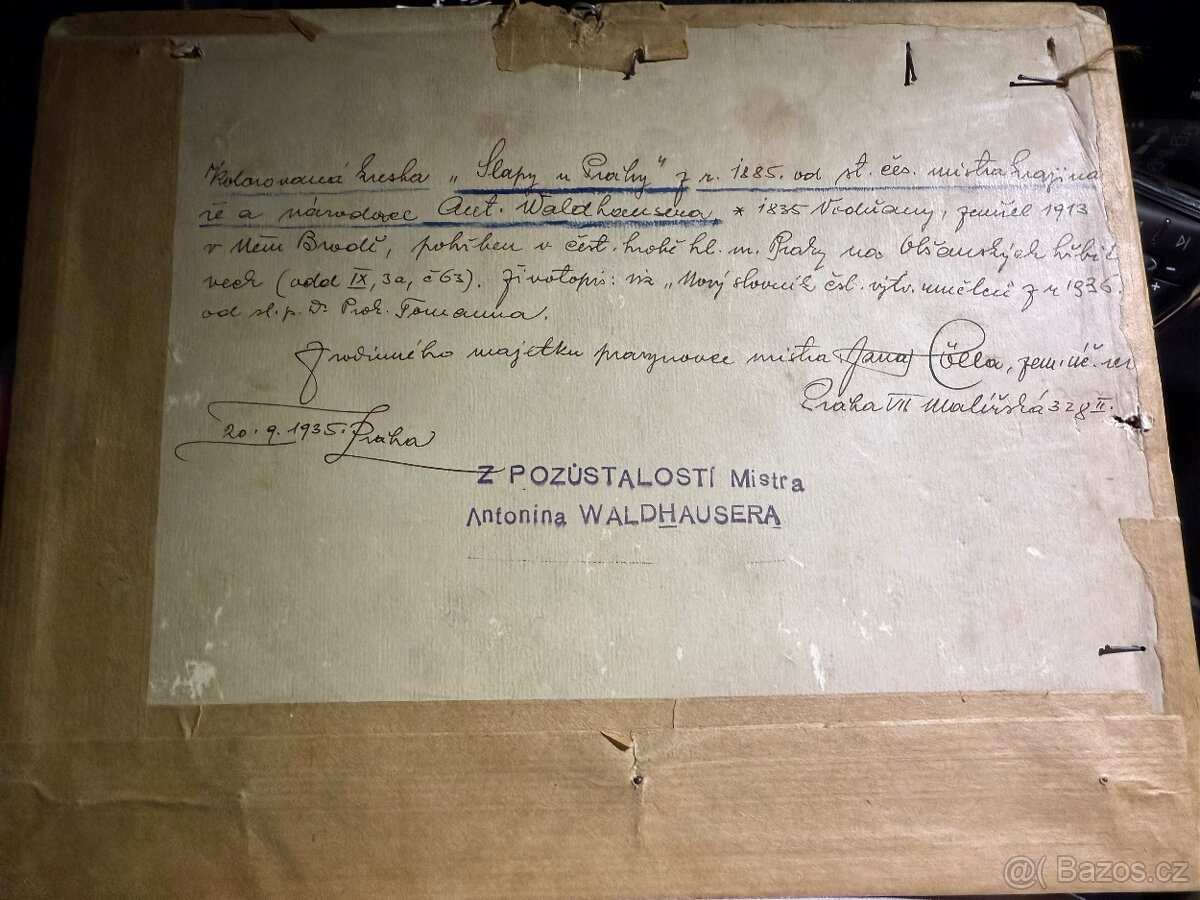 Kolorovaná kresba „Slapy u Prahy" z r. 1885. od st. čes. mistra krajina
ře a národovce Ant. Waldhausera, * 1835 Vodňany, zemřel 1913
v Něm Brodě, pohřben v čest. hrobě hl. m. Prahy na Olšanských hřbit
vech (odd IX, 3a, č 63). Životopis: viz „Nový slovník čsl. výtv. umělců z r 1936.
od sl. p. Dr Prok. Tomanna.
Z rodinného majetku prasynovce mistra Jana Cölla, zem.
Praha VII Malířská
20. 9. 1935. Praha
Z POZŮSTALOSTÍ Mistra
Antonina WALDHAUSERA
Bazos.cz